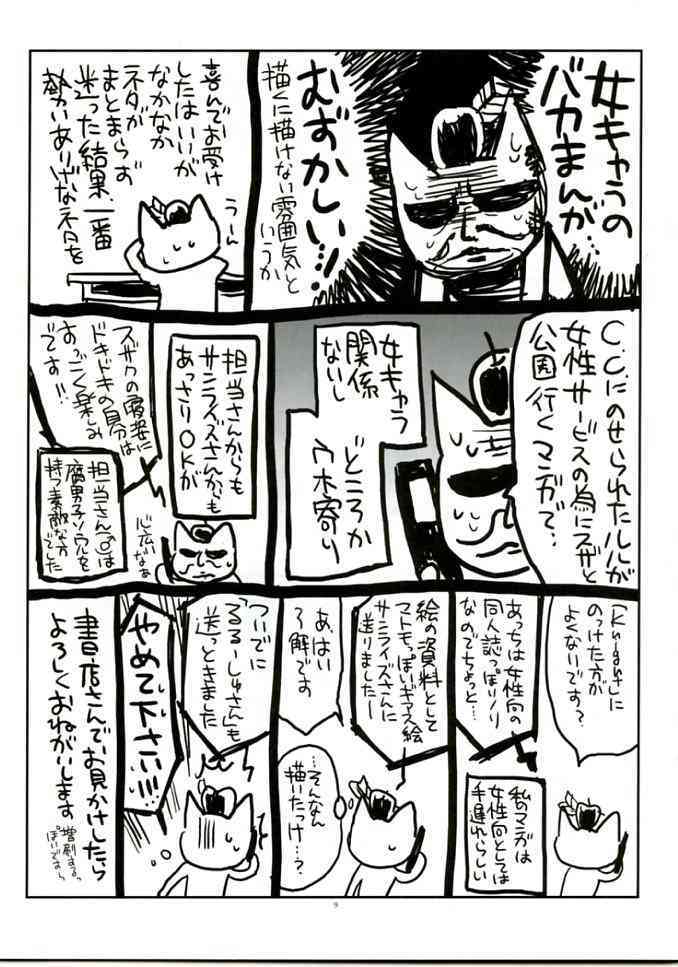 女キャラの
バカまんが
むずかしい…!!
描くに描けない雰囲気と
いうか
喜んでお受け
したはいいが
なかなか
ネタが
まとまらず
迷った結果、一番
勢いありげなネタを
うーん
C.C.にのせられたルルが
女性サービスの為にスザと
公園行くマンガで…
女キャラ
関係
ないし
どころか
ウホ寄り
担当さんからも
サンライズさんからも
あっさりOKが
スザクの痴姿に
ドキドキの自分は
すっごく楽しみ
です!!
担当さん(♂)は
腐男子ソウルを
持つ素敵な方
でした
心広いなぁ
「Knight」に
のっけた方が
よくないです?
あっちは女性向の
同人誌っぽいノリ
なのでちょっと…
私のマンガは
女性向としては
手遅れらしい
絵の資料として
マトモっぽいギアス絵
サンライズさんに
送りましたー
あ、はい
了解です
…そんなん
描いたっけ…?
ついでに
「るるーしゅさん」も
送っときました
やめて下さい!!!
書店さんでお見かけしたら
よろしくおねがいします
増刷する
っぽいですから
9